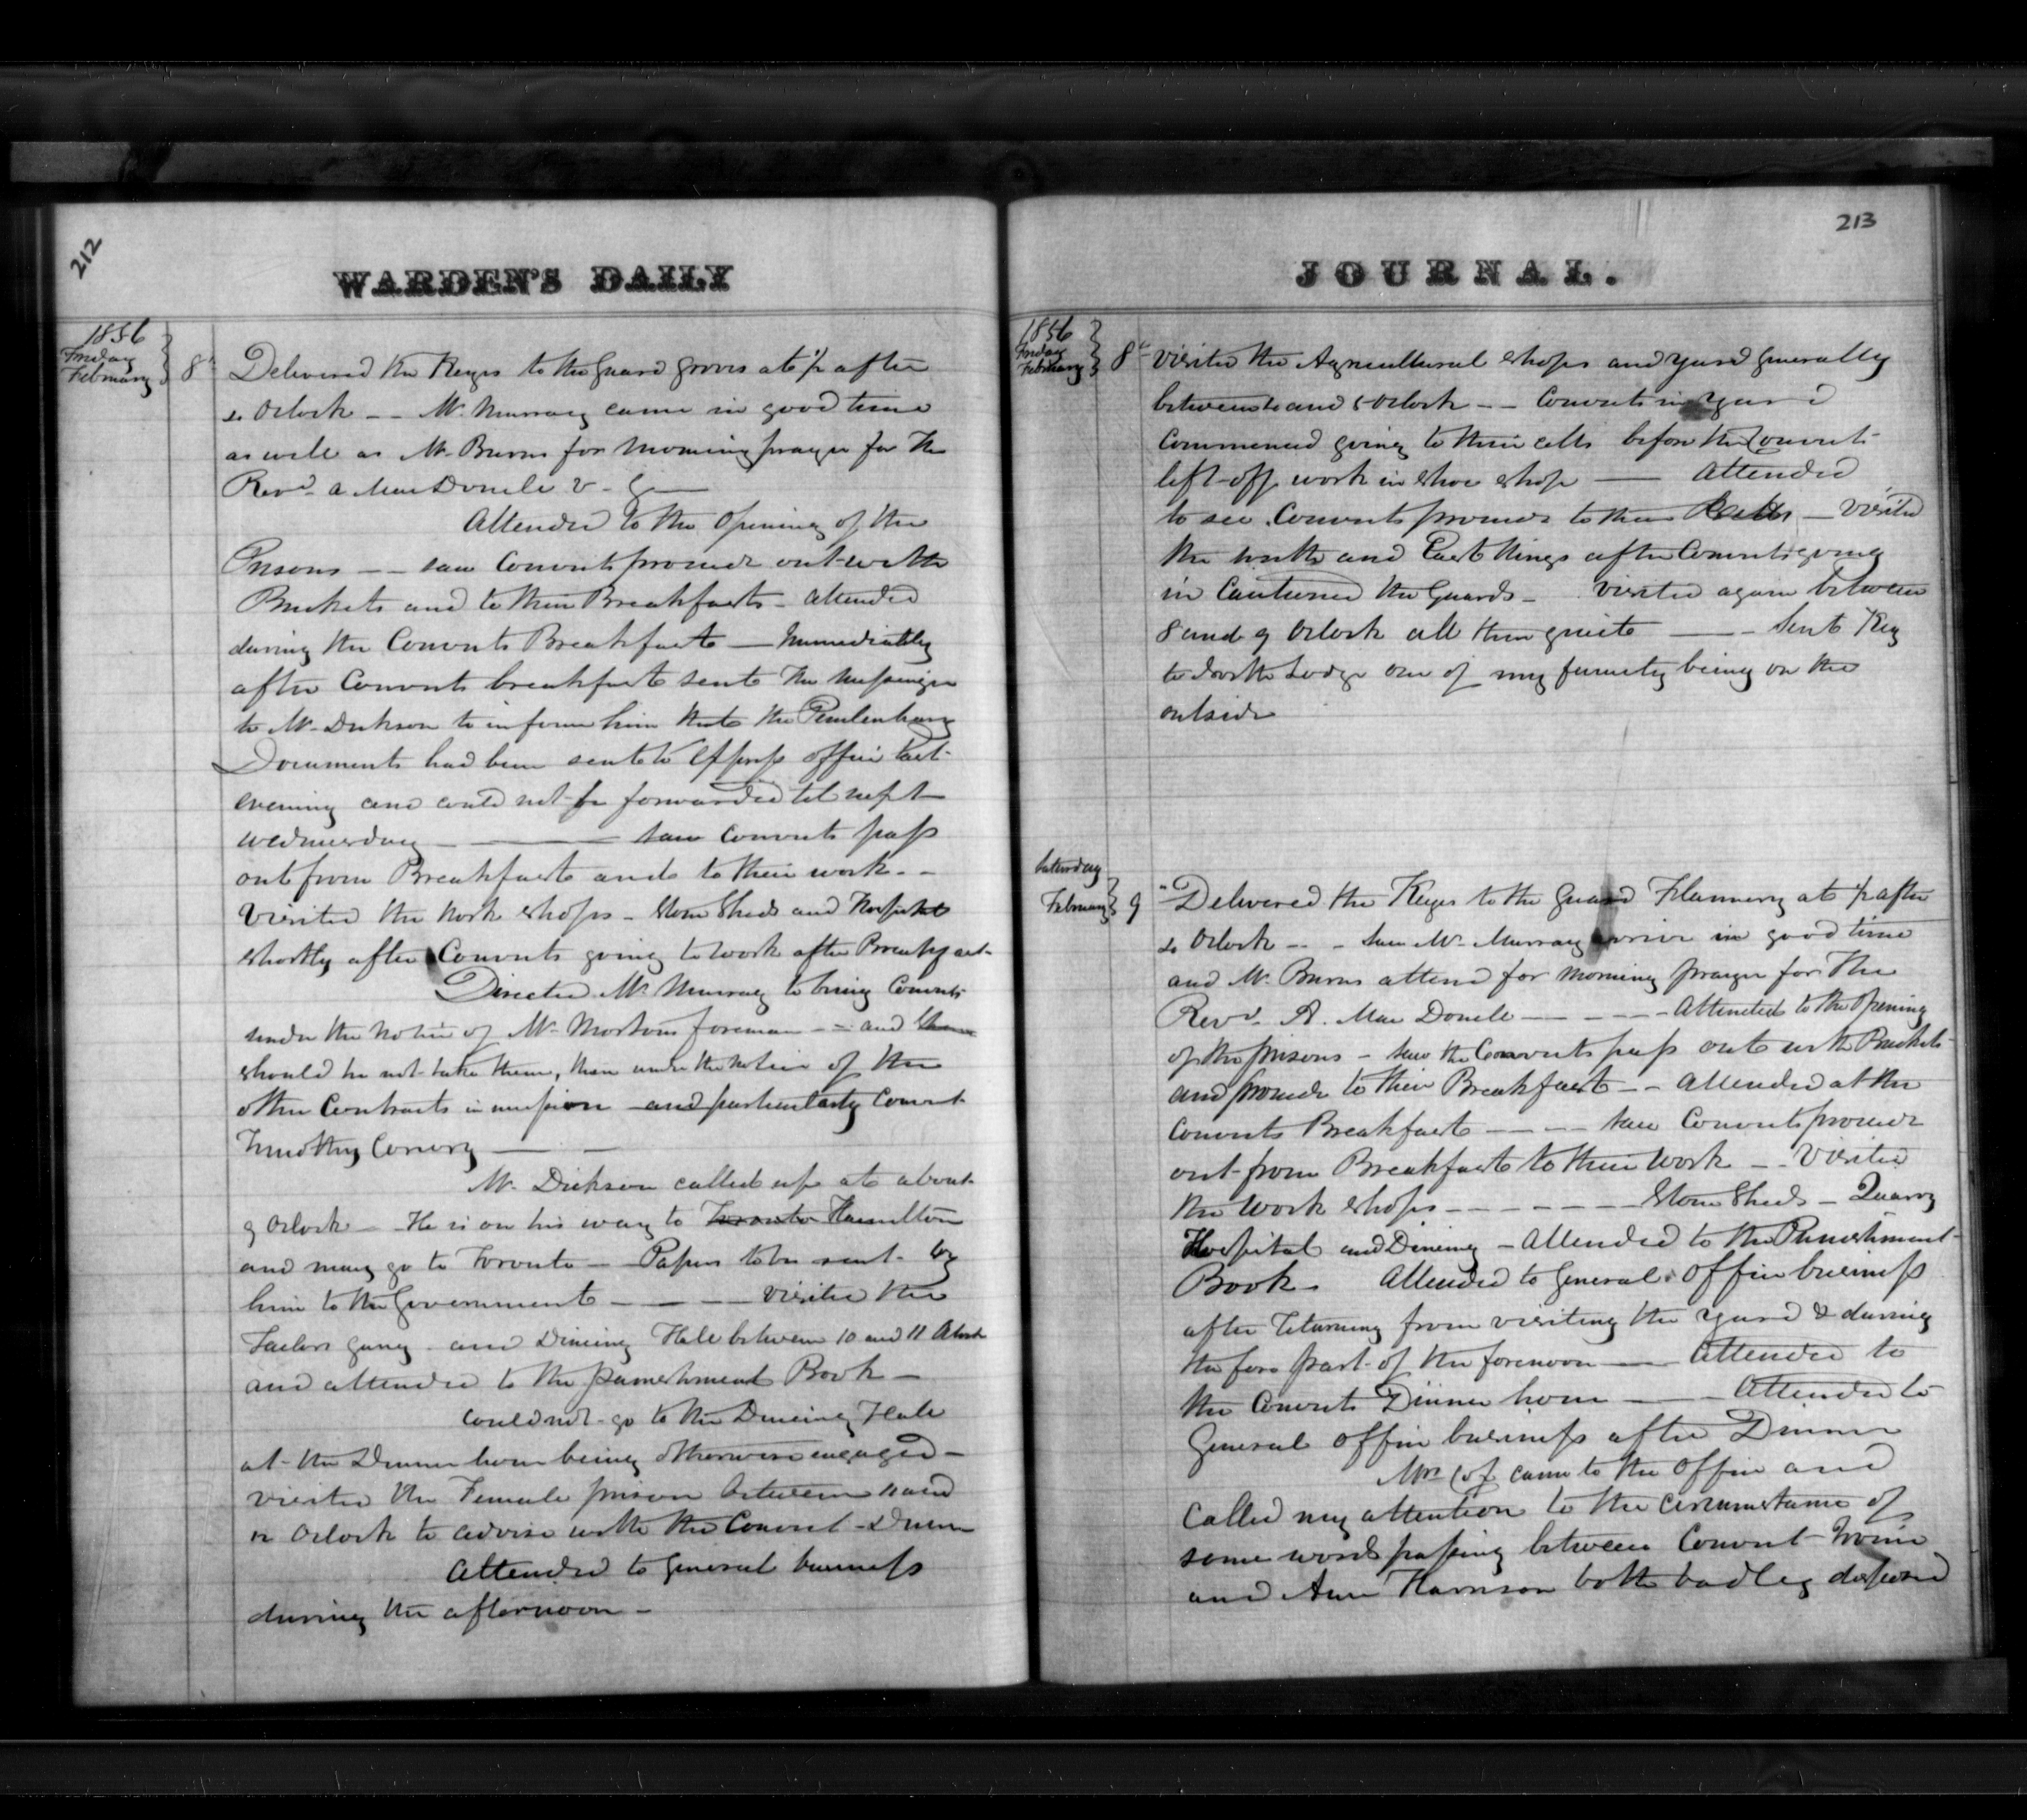 212
WARDEN'S DAILY
1856
Friday
February 8th
Delivered the Keys to the Guard Groves at ½ after
6 Oclock -- Mr Murray came in good time
as well as Mr Burns for Morning prayer for the
Revd A MacDonell V. G
Attended to the Opening of the
Prisons -- saw Convicts proceed out with
Buckets and to their Breakfasts - attended
during the Convicts Breakfast — Immediately
after Convicts breakfast sent the Messenger
to Mr Dickson to inform him that the Penitentiary
Documents had been sent to Express office last
evening and could not be forwarded til next
Wednesday ——— saw Convicts pass
out from Breakfast and to their work --
Visited the Work shops - Stone Sheds and Hospital
shortly after Convicts going to work after Breakfast
Directed Mr Murray to bring Convicts
under the notice of Mr Mortons foreman -- and
should he not take them, then under the notice of the
other Contracts in and particularly Convict
Timothy Conery ——
Mr Dickson called up at about
9 Oclock — He is on his way to Toronto Hamilton
and may go to Toronto — Papers to be sent by
him to the Government ——— visited the
Tailors gang and Dining Hall between 10 and 11 Oclock
and attended to the punishment Book —
Could not go to the Dining Hall
at the Dinner hour being otherwise engaged —
visited the Female prison between 11 and
12 Oclock to advise with the Convict
Attended to General business
during the afternoon —
213
JOURNAL.
1856
Friday
February 8th
Visited the Agricultural shops and yard generally
between and 5 Oclock -- Convicts in yard
commenced going to their cells before the Convicts
left off work in shoe shop —— Attended
to see Convicts proceed to their Cells — Visited
the and after Convicts going
in Cautioned the Guards — Visited again between
8 and 9 Oclock all then quiet —— Sent Key
to North Lodge one of my family being on the
outside
Saturday
February 9
" Delivered the Keys to the Guard Flannery at ½ after
6 Oclock -- Saw Mr Murray arrive in good time
and Mr Burns attend for morning prayer for the
Revd A. Mac Donell ———— Attended to the Opening
of the prisons — saw the Convicts pass out with Buckets
and proceed to their Breakfast -- attended at the
Convicts Breakfast ——— saw Convicts proceed
out from Breakfast to their work -- Visited
the work shops ———— Stone Sheds — Quarry
Hospital and Dining — Attended to the Punishment
Book - Attended to General Office business
after returning from visiting the yard & during
the fore part of the forenoon —— Attended to
the Convicts Dinner hour ——— Attended to
General office business after Dinner
Mrs Cox came to the Office and
called my attention to the circumstance of
some words passing between Convict
and Ann Harrison both badly disposed